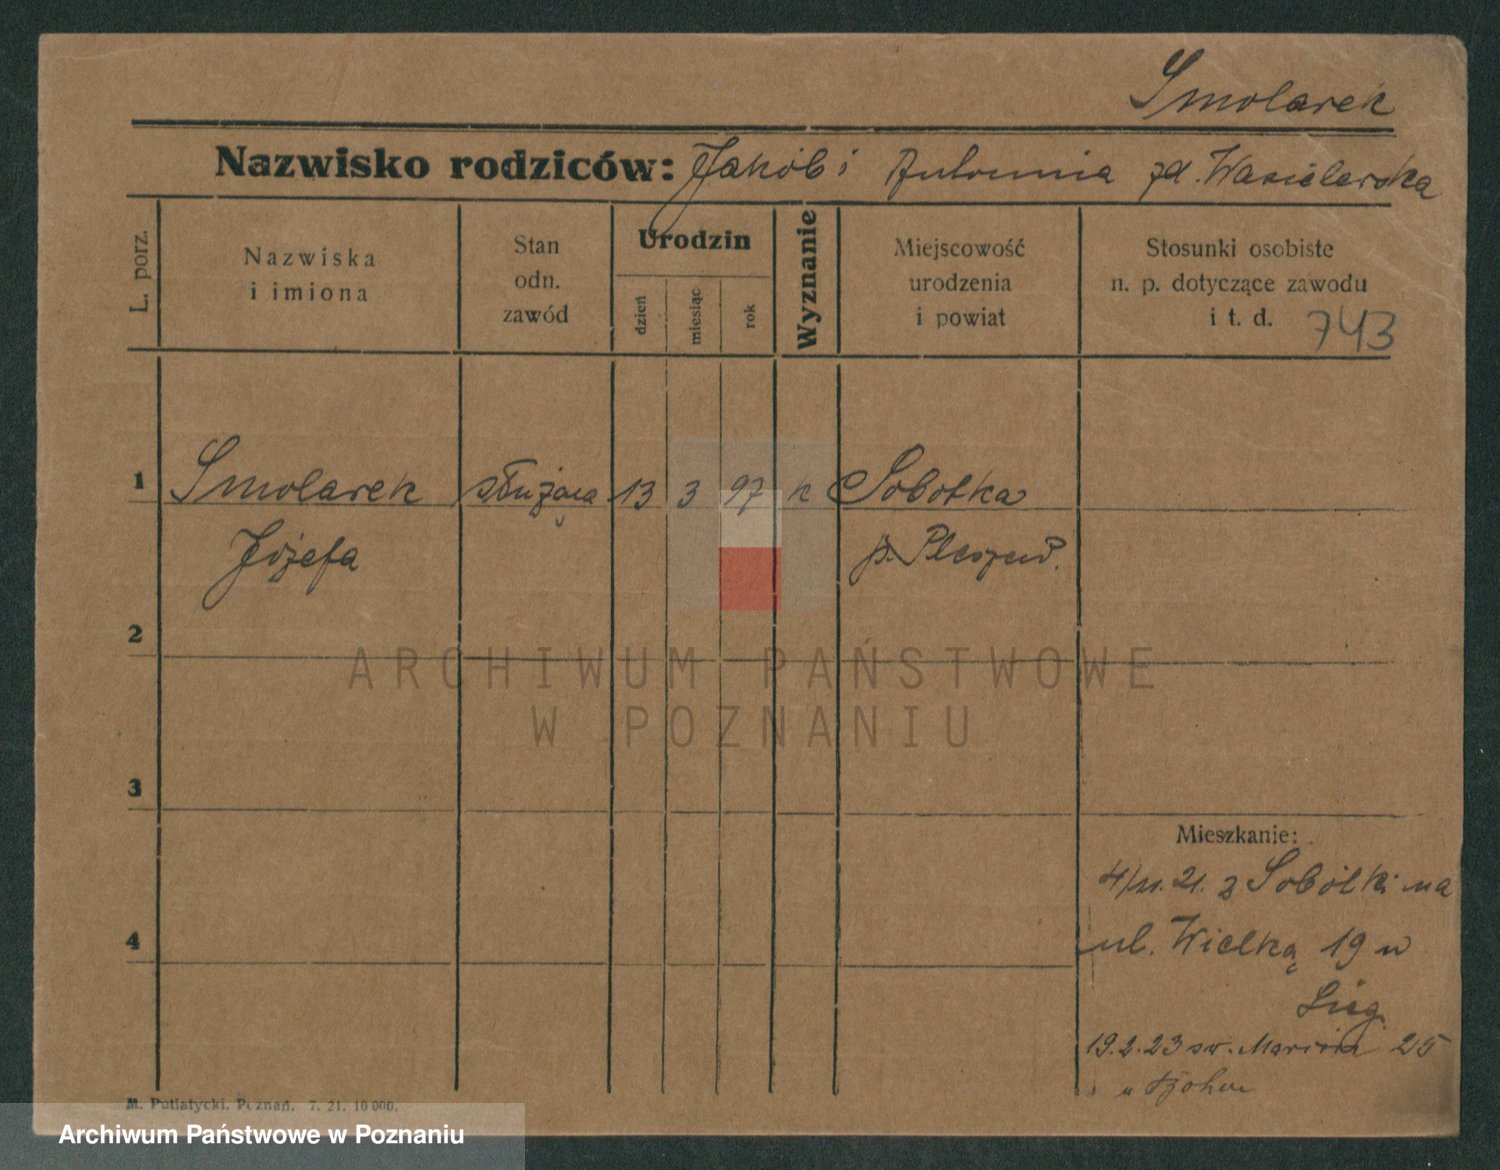 Smolarek
Nazwisko rodziców: Jakób i Antonina zd. Wasielewska
L. porz.
Nazwiska
i imiona
Stan
odn.
zawód
Urodzin
dzień
miesiąc
rok
Wyznanie
Miejscowość
urodzenia
i powiat
Stosunki osobiste
n. p. dotyczące zawodu
i t. d. 743
1 Smolarek służąca 13 3 97 k Sobotka
Józefa p. Pleszew.
2
3
4
ARCHIWUM PAŃSTWOWE
W POZNANIU
Mieszkanie:
z Sobótki na
ul. Wielką 19 u
19.2.23 św. Marcin 25
u
M. Putiatycki, Poznań. 7. 21. 10 000.
Archiwum Państwowe w Poznaniu